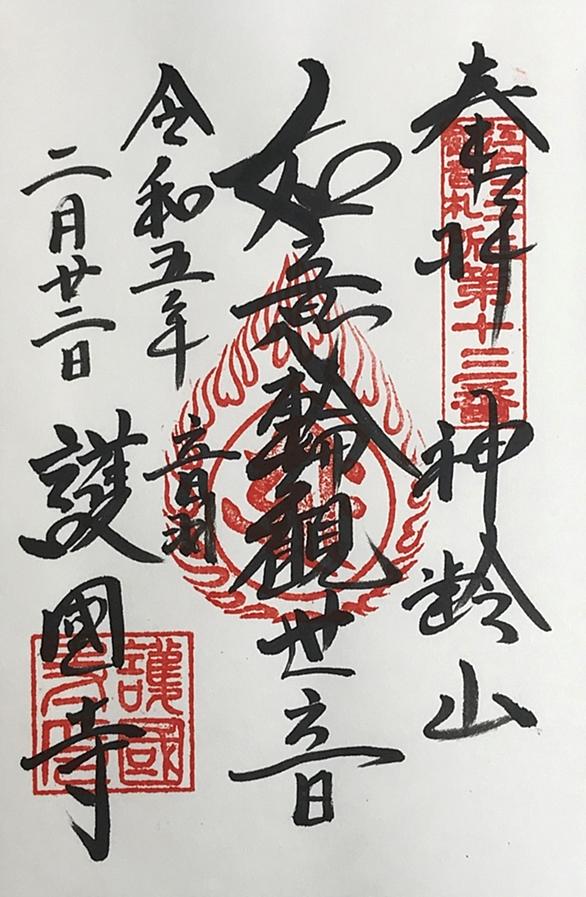 奉拝 神齢山
江戸三十三
観音札所第十三番
如意輪觀世音
令和五年
二月廿二日
音羽
護國寺
護國